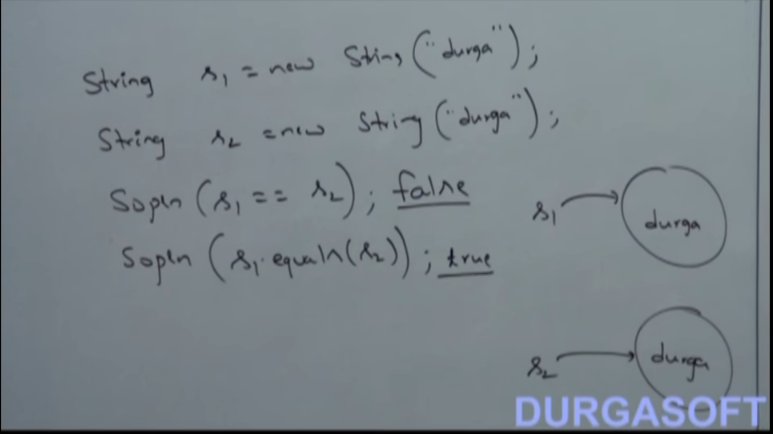 String s1 = new String("durga");
String s2 = new String("durga");
Sopln (s1 == s2); false
Sopln (s1.equals(s2)); true
s1 durga
s2 durga
DURGASOFT